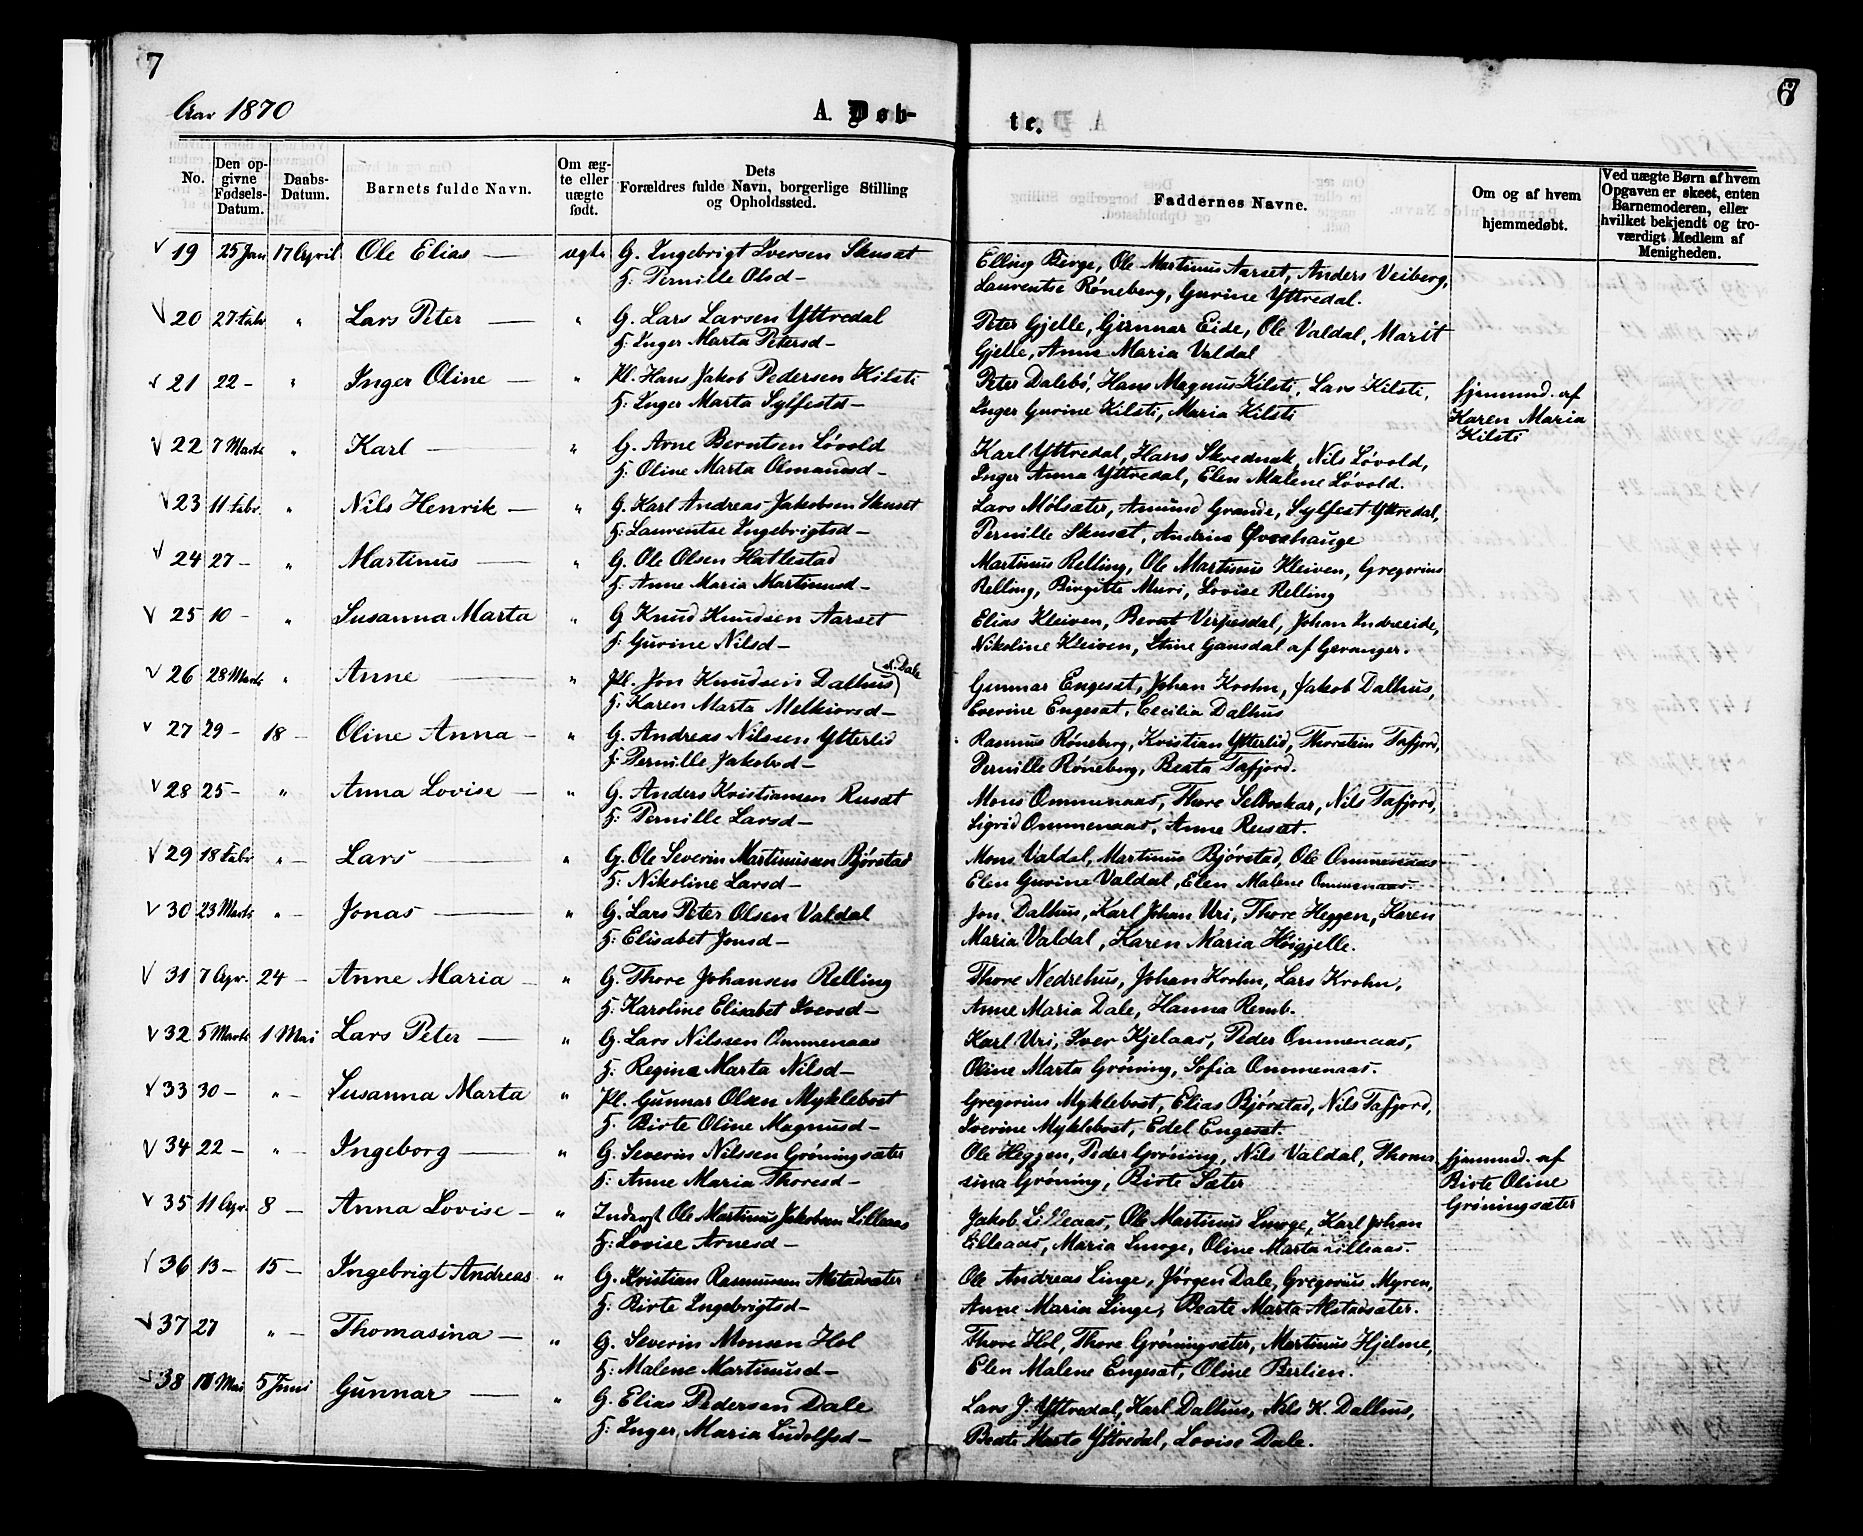 7
7
Aar 1870
A. Døb-
te.
No.
Den op-
givne
Fødsels-
Datum.
Daabs-
Datum.
Barnets fulde Navn.
Om æg-
te eller
uægte
født.
Dets
Forældres fulde Navn, borgerlige Stilling
og Opholdssted.
Faddernes Navne.
Om og af hvem
hjemmedøbt.
Ved uægte Børn af hvem
Opgaven er skeet, enten
Barnemoderen, eller
hvilket bekjendt og tro-
værdigt Medlem af
Menigheden.
19 25 Jan 17 April Ole Elias — ægte G. Ingebrigt Iversen Skuset Elling Berge, Ole Martinus Aarset, Anders Veiberg,
H: Pernille Olsd — Laurentse Røneberg, Gurine Yttredal.
20 27 Febr " Lars Peter — " G. Lars Larsen Yttredal Peter Gjelle, Gunnar Eide, Ole Valdal, Marit
H: Inger Marta Petersd — Gjelle, Anne Maria Valdal
21 22 — " Inger Oline — " Pl. Hans Jakob Pedersen Kilsti Peter Dalebø, Hans Magnus Kilsti, Lars Kilsti, hjemmed. af
H: Inger Marta Sylfestd — Inger Gurine Kilsti, Maria Kilsti Karen Maria
Kilsti
22 7 Marts " Karl — " G. Arne Berntsen Løvold Karl Yttredal, Hans Skrednak, Nils Løvold,
H: Oline Marta Olmandsd — Inger Anna Yttredal, Elen Malene Løvold.
23 11 Febr " Nils Henrik — " G. Karl Andreas Jakobsen Skuset Lars Mølsæter, Amund Grande, Sylfest Yttredal,
H: Laurentse Ingebrigtsd — Pernille Skuset, Andrine Øvrehauge
24 27 — " Martinus — " G. Ole Olsen Hattestad Martinus Relling, Ole Martinus Kleiven, Gregorius
H: Anne Maria Martinusd — Relling, Birgitte Muri, Lovise Relling
25 10 — " Susanna Marta " G Knud Knudsen Aarset Elias Kleiven, Bernt Verpesdal, Johan Indreeide,
H: Gurine Nilsd — Nikoline Kleiven, Stine Gausdal af Geiranger.
26 28 Marts " Anne — " Pl. Jon Knudsen Dalhus Gunnar Engeset, Johan Krohn, Jakob Dalhus,
H: Karen Marta Melkiorsd — Everine Engeset, Cecilia Dalhus
27 29 — 18 — Oline Anna — " G. Andreas Nilssen Ytterlid Rasmus Røneberg, Kristian Ytterlid, Thorstein Tafjord,
H: Pernille Jakobsd — Pernille Røneberg, Beata Tafjord.
28 25 — " Anna Lovise — " G. Anders Kristiansen Ruset Mons Ommenaas, Thore Selboskar, Nils Tafjord,
H: Pernille Larsd — Sigrid Ommenaas, Anne Ruset.
29 18 Febr " — Lars — " G. Ole Severin Martinussen Bjørstad Mons Valdal, Martinus Bjørstad, Ole Ommenaas
H: Nikoline Larsd — Elen Gurine Valdal, Elen Malene Ommenaas.
30 23 Marts " — Jonas — " G. Lars Peter Olsen Valdal Jon Dalhus, Karl Johan Uri, Thore Heggen, Karen
H: Elisabet Jonsd — Maria Valdal, Karen Maria Høigjelle.
31 7 Apr. 24 — Anne Maria — " G. Thore Johansen Relling Thore Nedrehus, Johan Krohn, Lars Krohn,
H: Karoline Elisabet Iversd — Anne Maria Dale, Hanna Remb.
32 5 Marts 1 Mai Lars Peter — " G. Lars Nilssen Ommenaas Karl Uri, Iver Kjelaas, Peder Ommenaas,
H: Regine Marta Nilsd — Oline Marta Grøning, Sofia Ommenaas.
33 30 — " — Susanna Marta " Pl. Gunnar Olsen Myklebost Gregorius Myklebost, Elias Bjørstad, Nils Tafjord,
H: Birte Oline Magnusd — Iverine Myklebost, Edel Engeset.
34 22 — " — Ingeborg — " G. Severin Nilssen Grøningsæter Ole Heggen, Peder Grøning, Nils Valdal, Thoma hjemmed. af
H: Anne Maria Thoresd — sina Grøning, Birte Sæter Birte Oline
Grøningsæter
35 11 Apr. 8 — Anna Lovise — " Inderst Ole Martinus Jakobsen Lilleaas Jakob Lilleaas, Ole Martinus Smoge, Karl Johan
H: Lovise Arnesd — Lilleaas, Maria Smoge, Oline Marta Lilleaas.
36 13 — 15 — Ingebrigt Andreas " G. Kristian Rasmussen Alstadsæter Ole Andreas Linge, Jørgen Dale, Gregorius Myren,
H: Birte Ingebrigtsd — Anne Maria Linge, Beate Marta Alstadsæter.
37 27 " — Thomasina — " G. Severin Monsen Hol Thore Hol, Thore Grøningsæter, Martinus Hjelme,
H: Malene Martinusd — Elen Malene Engeset, Oline Berlien.
38 11 Mai 5 Juni Gunnar — " G. Elias Pedersen Dale Lars J. Yttredal, Karl Dalhus, Nils K. Dalhus,
H: Inger Maria Ludolfsd — Beate Marta Yttredal, Lovise Dale.